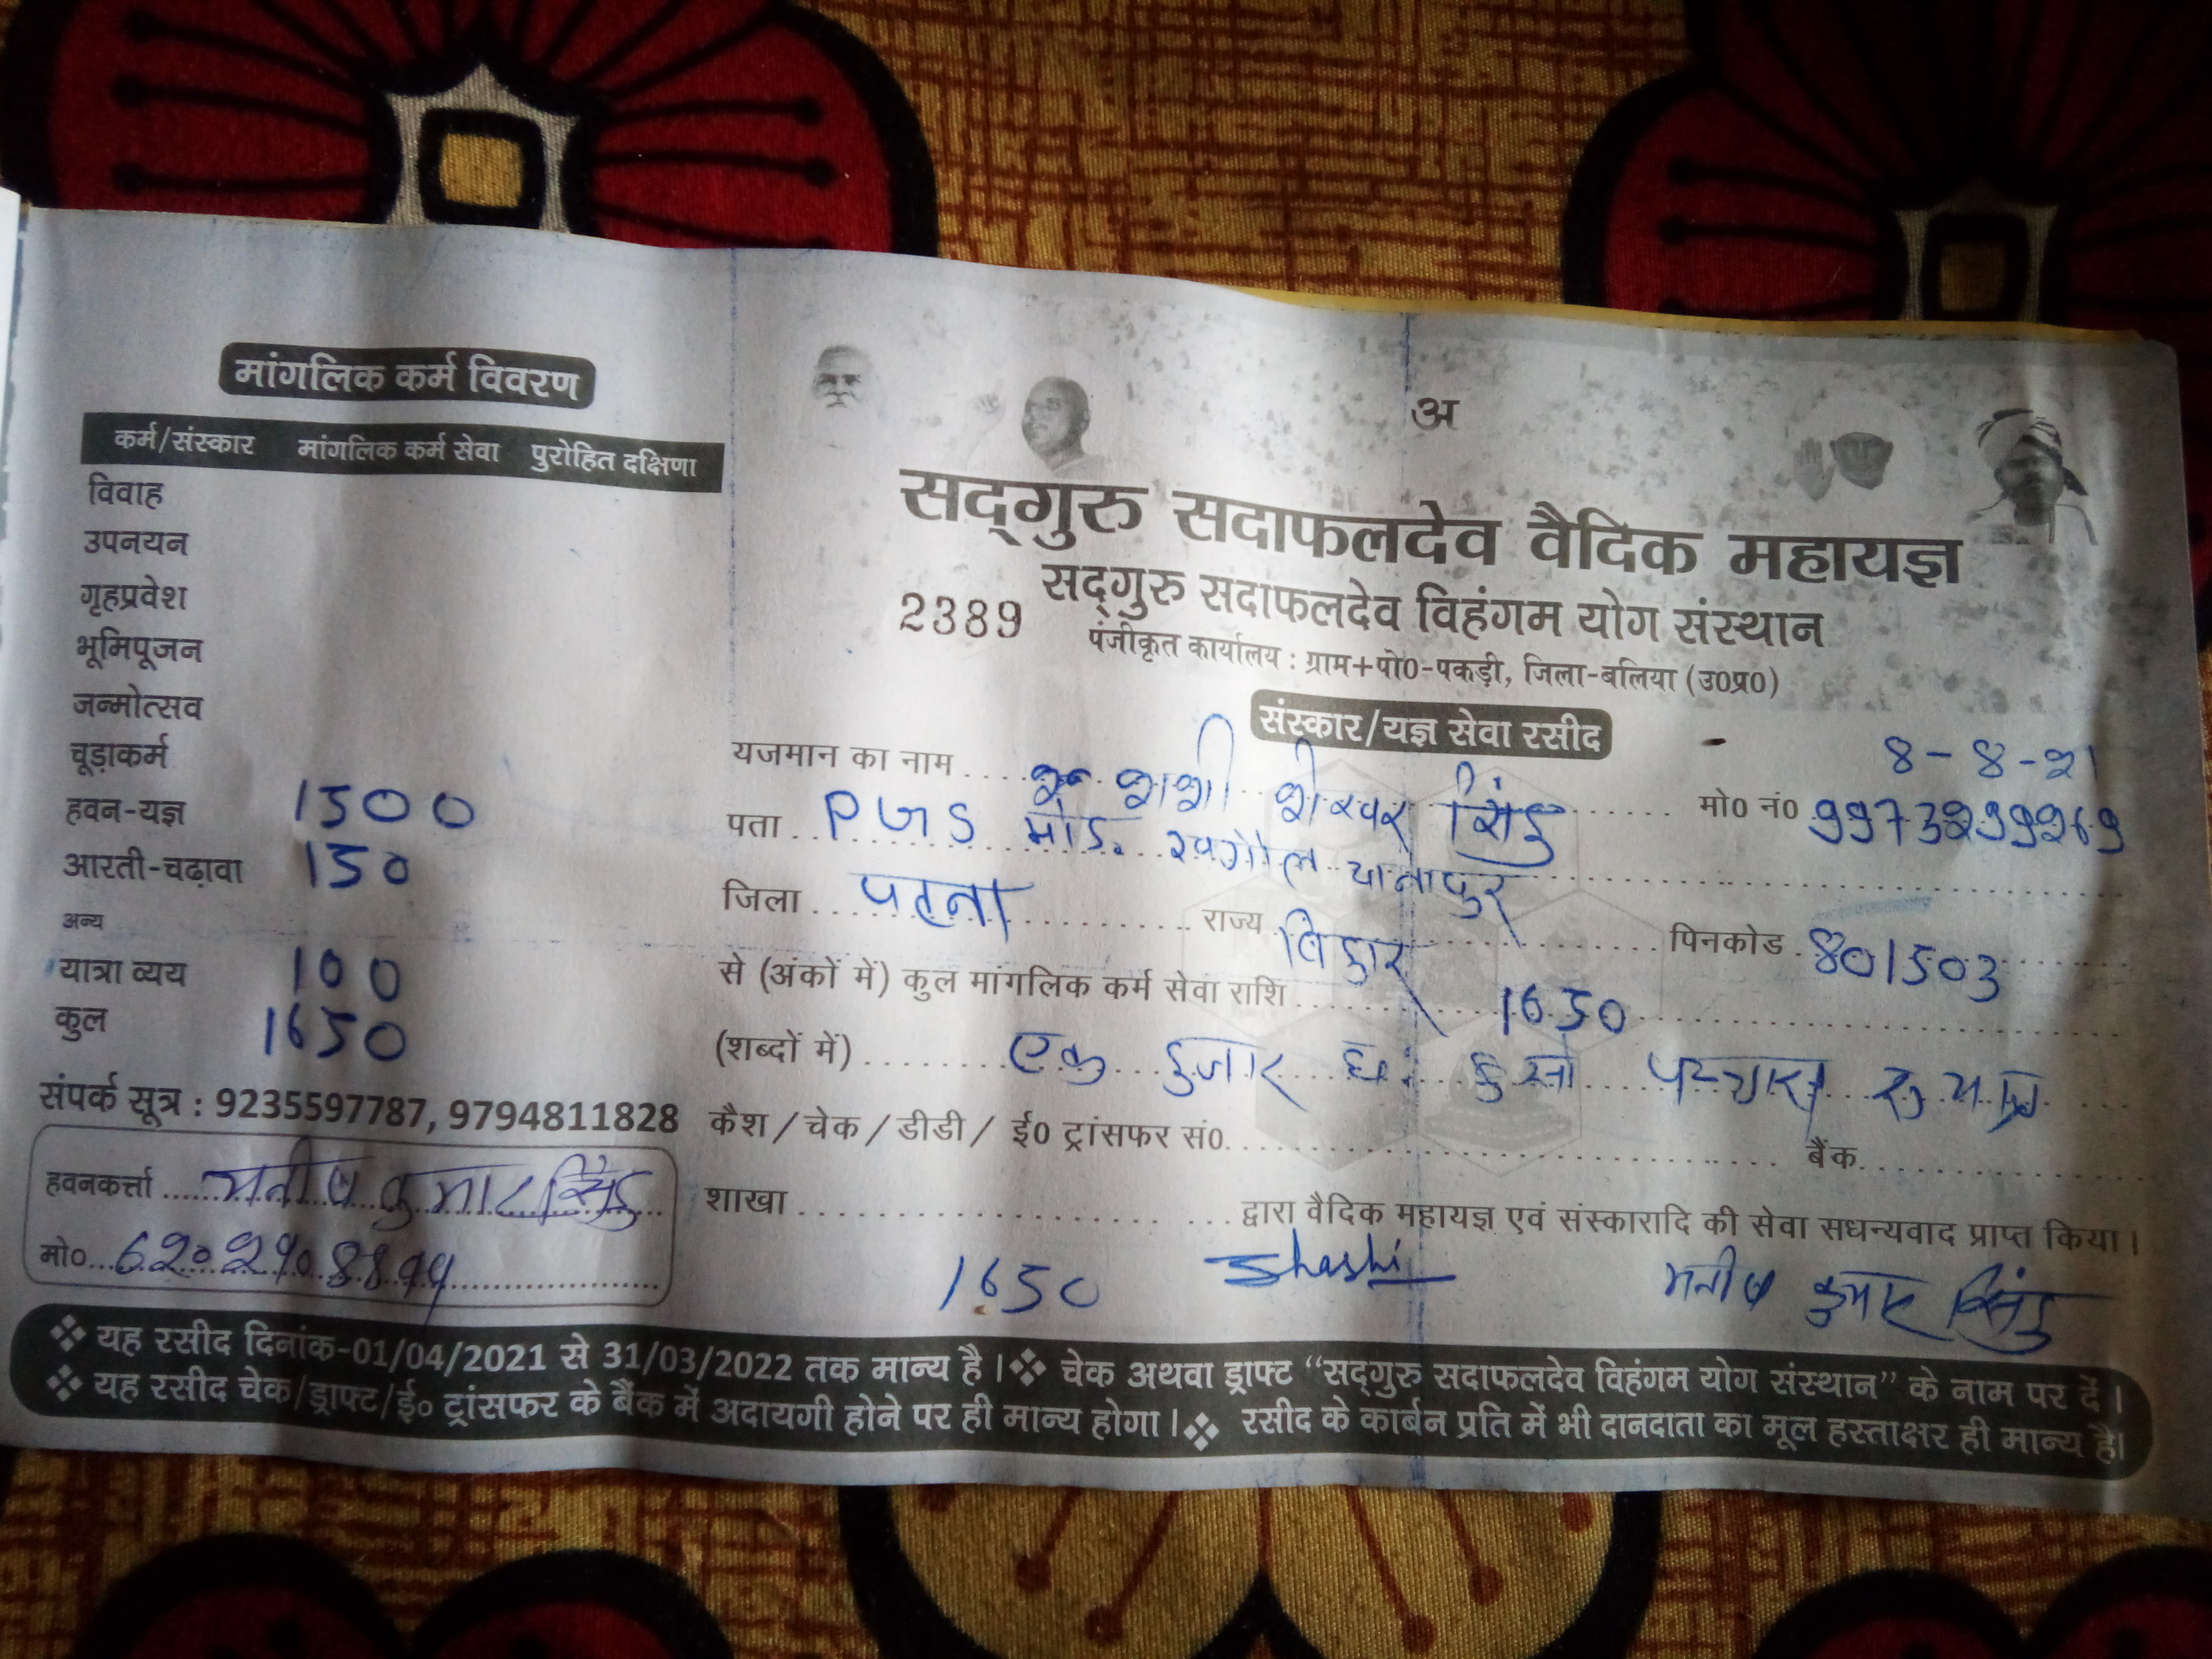 मांगलिक कर्म विवरण
कर्म/संस्कार मांगलिक कर्म सेवा पुरोहित दक्षिणा
विवाह
उपनयन
गृहप्रवेश
भूमिपूजन
जन्मोत्सव
चूड़ाकर्म
हवन-यज्ञ 1500
आरती-चढ़ावा 150
अन्य
यात्रा व्यय 100
कुल 1650
संपर्क सूत्र : 9235597787, 9794811828
हवनकर्त्ता मनीष कुमार सिंह
मो०
अ
सद्गुरु सदाफलदेव वैदिक महायज्ञ
सद्गुरु सदाफलदेव विहंगम योग संस्थान
2389
पंजीकृत कार्यालय : ग्राम+पो0-पकड़ी, जिला-बलिया (उ0प्र0)
संस्कार/यज्ञ सेवा रसीद
8-8-२1
यजमान का नाम शशी शेखर सिंह मो0 नं0 9973299269
पता मोड़. खगौल दानापुर
जिला पटना राज्य बिहार पिनकोड 801503
से (अंकों में) कुल मांगलिक कर्म सेवा राशि 1650
(शब्दों में) एक हजार छः सौ पच्चास
कैश / चेक / डीडी / ई0 ट्रांसफर सं0. बैंक
शाखा द्वारा वैदिक महायज्ञ एवं संस्कारादि की सेवा सधन्यवाद प्राप्त किया।
1650 Shashi मनीष कुमार सिंह
❖ यह रसीद दिनांक-01/04/2021 से 31/03/2022 तक मान्य है। ❖ चेक अथवा ड्राफ्ट “सद्गुरु सदाफलदेव विहंगम योग संस्थान” के नाम पर दें।
❖ यह रसीद चेक/ड्राफ्ट/ई० ट्रांसफर के बैंक में अदायगी होने पर ही मान्य होगा। ❖ रसीद के कार्बन प्रति में भी दानदाता का मूल हस्ताक्षर ही मान्य है।